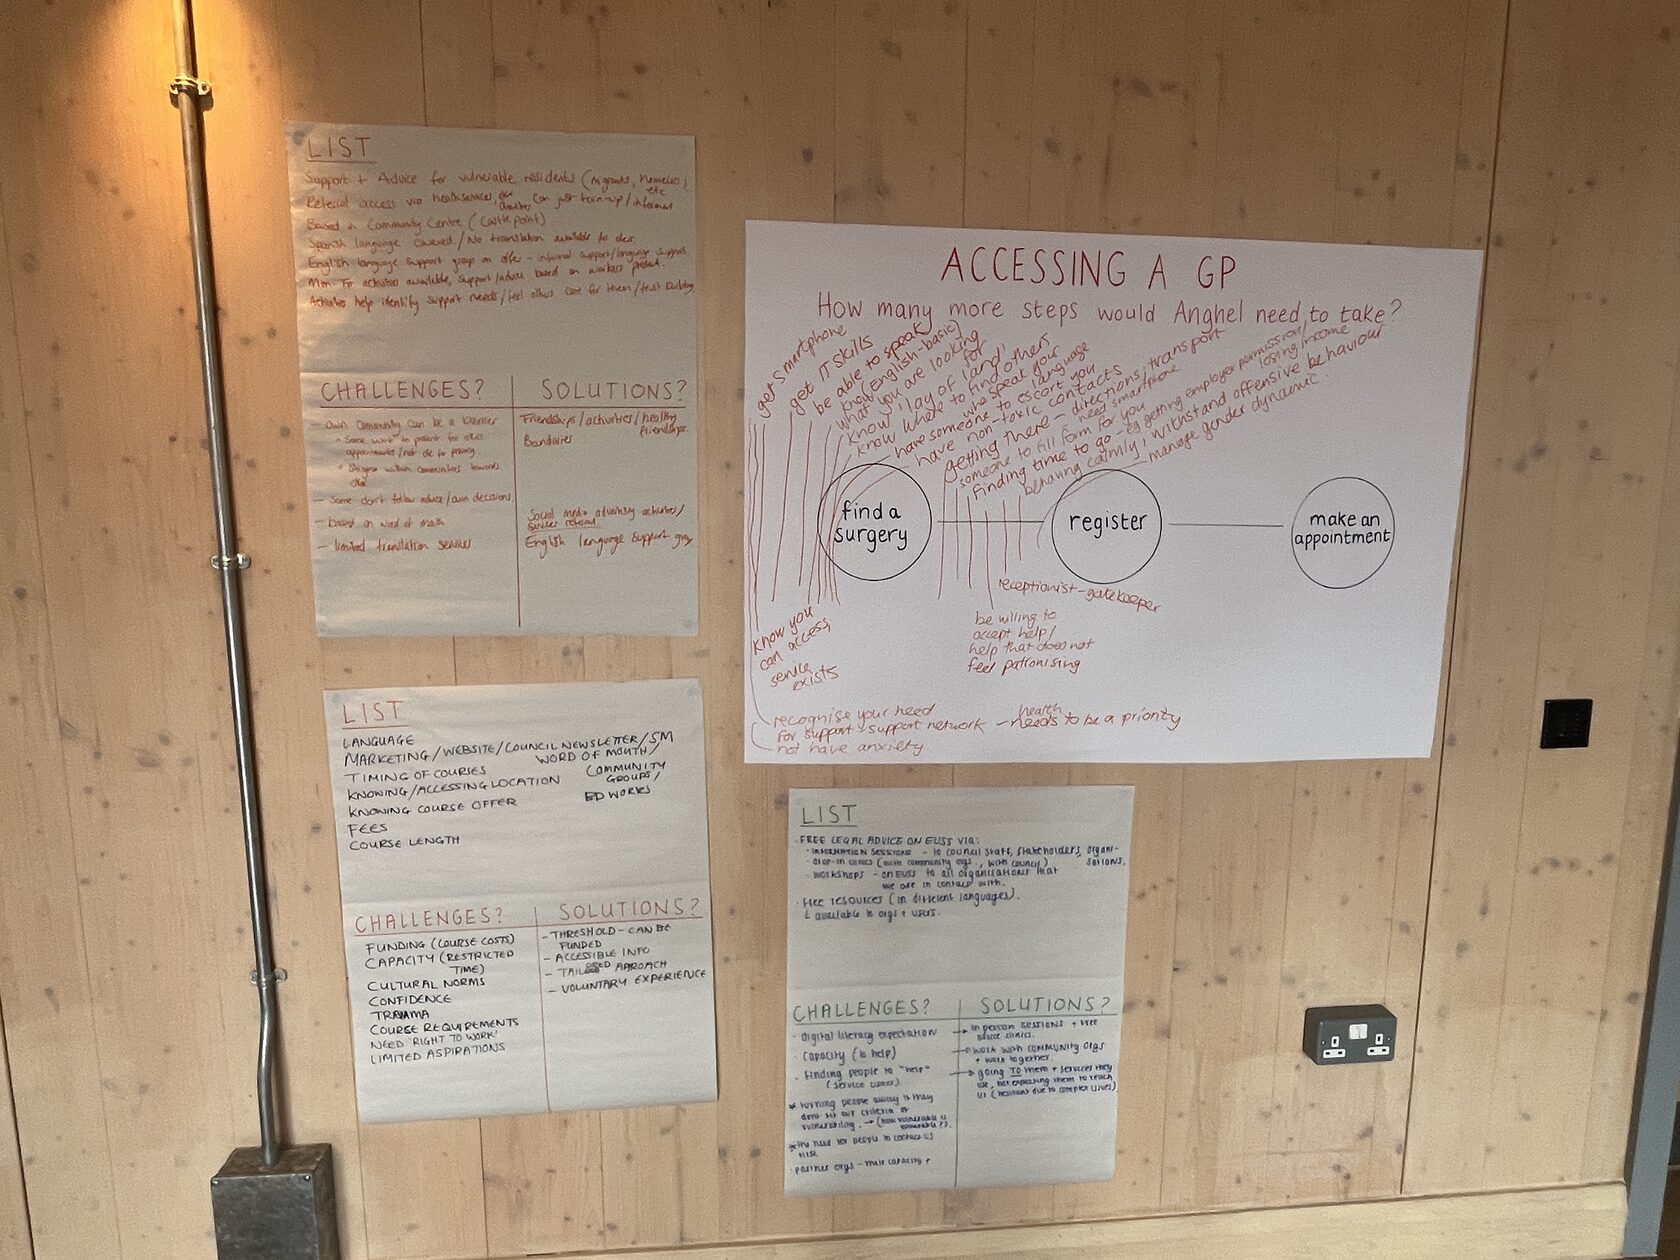 LIST
Support + Advice for vulnerable residents (migrants, homeless,
etc
Referral access via healthservices, can just turn-up / informal
Based in Community Centre (Castlepoint)
Spanish language covered / No translation available to
English language support group on offer - informal support/language support
Mon - Fr activities available, support/advice based on workers present.
Activities help identify support needs / feel others care for them / trust building
CHALLENGES?
- own community can be a barrier
* Some work to present for other
appointments / not
* Stigma within communities towards
- Some don't follow advice / own decisions
- based on word of
- limited translation services
SOLUTIONS?
Friendships / activities / healthy
friendships.
Social media activities /
English language support
ACCESSING A GP
How many more steps would Anghel need to take?
get smartphone
get IT skills
be able to speak
(English-basic)
know
what you are looking
for
know 'lay of land'
know where to find others
who speak your
language
have someone to escort you
have non-toxic contacts
getting there - directions, transport
need smartphone
someone to fill form for you
finding time to go - eg getting employer permission/
losing income
behaving calmly, withstand offensive behaviour
manage gender dynamic.
find a
surgery
register
make an
appointment
receptionist - gatekeeper
be willing to
accept help/
help that does not
feel patronising
know you
can access,
service
exists
recognise your need
for support - support network - health
needs to be a priority
not have anxiety
LIST
LANGUAGE
MARKETING / WEBSITE / COUNCIL NEWSLETTER / SM
WORD OF MOUTH /
TIMING OF COURSES
COMMUNITY
GROUPS /
KNOWING / ACCESSING LOCATION
ED WORKS
KNOWING COURSE OFFER
FEES
COURSE LENGTH
CHALLENGES?
FUNDING (COURSE COSTS)
CAPACITY (RESTRICTED
TIME)
CULTURAL NORMS
CONFIDENCE
TRAUMA
COURSE REQUIREMENTS
NEED 'RIGHT TO WORK'
LIMITED ASPIRATIONS
SOLUTIONS?
- THRESHOLD - CAN BE
FUNDED
- ACCESSIBLE INFO
- TAILORED APROACH
- VOLUNTARY EXPERIENCE
LIST
· FREE LEGAL ADVICE ON EUSS VIA:
· INFORMATION SESSIONS - to council staff, stakeholders, organi-
sations.
· drop-in clinics (with community orgs., with council)
· workshops - on EUSS to all organisations that
we are in contact with.
· Free resources (in different languages).
available to orgs + users.
CHALLENGES?
· Digital literacy expectation
· Capacity (to help)
· Finding people to "help"
(service users)
* turning people away if they
dont fit our criteria of
vulnerability. → (how vulnerable is
vulnerable?).
* The need for people to contact us
first
· partner orgs - their capacity +
SOLUTIONS?
→ in person sessions + free
advice clinics.
→ work with community orgs
+ work together.
→ going TO them + services they
use, not expecting them to reach
us (hesitant due to complex issues)